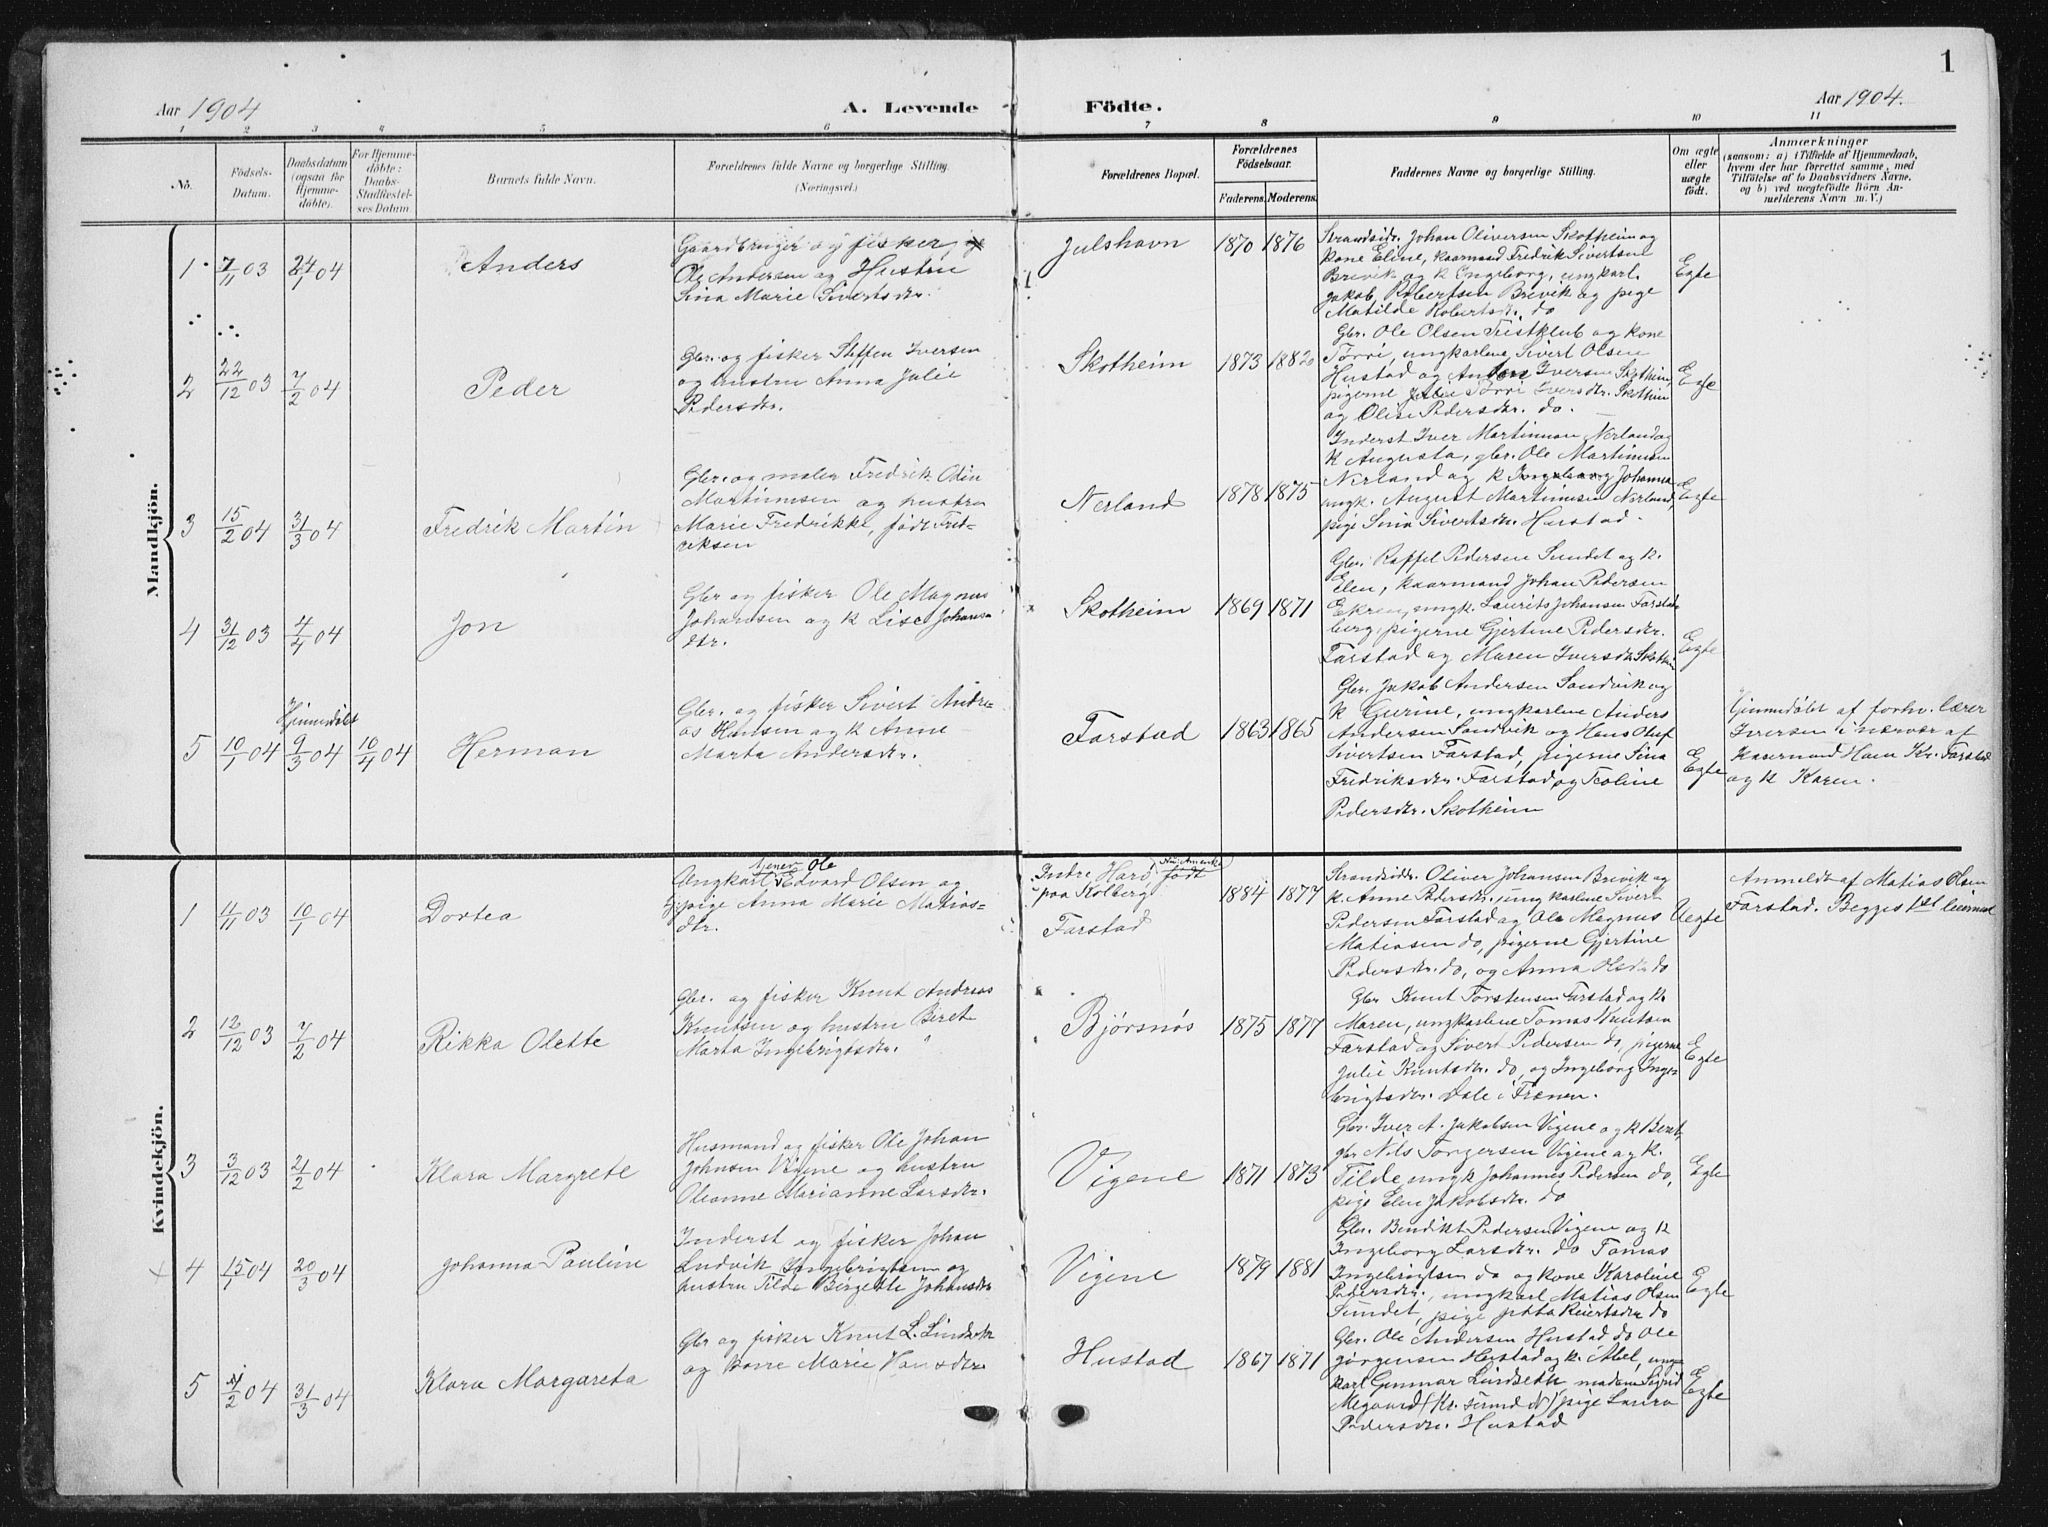 1
Aar 1904
A. Levende
Födte.
Aar 1904.
1 2 3 4 5 6 7 8 9 10 11
No.
Födsels-
Datum.
Daabsdatum
(ogsaa for
Hjemme-
döbte).
For Hjemme-
döbte:
Daabs-
Stadfæstel-
ses Datum
Barnets fulde Navn.
Forældrenes fulde Navne og borgerlige Stilling.
(Næringsvei.)
Forældrenes Bopæl.
Forældrenes
Födselsaar.
Faderens. Moderens.
Faddernes Navne og borgerlige Stilling.
Om ægte
eller
uægte
födt.
Anmærkninger
(saasom: a) i Tilfælde af Hjemmedaab,
hvem der har forrettet samme, med
Tilföielse af to Daabsvidners Navne,
og b) ved uægtefödte Börn An-
melderens Navn m. V.)
Mandkjön.
1. 7/11 03 24/1 04
Anders
Gaardbruger og fisker
Ole Andersen og Hustru
Sina Marie Sivertsdtr.
Julshavn
1870 1876
Strandsidr. Johan Oliversen Skotheim og
kone Eline, kaarmand Fredrik Sivertsen
Brevik og k Engeborg, ungkarl
Jakob Robertsen Brevik og pige
Matilde Robertsdr. do
Egte
2 22/12 03 7/2 04
Peder
Gbr. og fisker Steffen Iversen
og hustru Anna Julie
Pedersdtr.
Skotheim
1873 1882
Gbr. Ole Olsen Tistklub og kone
Torri, ungkarlene Sivert Olsen
Hustad og Anders Iversen Skotheim,
pigerne Julie Torri Iversdtr. Skotheim
og Oline Pedersdtr. do.
Egte
3 15/2 04 31/3 04
Fredrik Martin
Gbr. og maler Fredrik Odin
Martinusen og hustru
Marie Fredrikke, født Fred-
riksen
Nerland
1878 1875
Inderst Iver Martinusen Nerland og
k Augusta, gbr. Ole Martinusen
Nerland og k Ingeborg Johanna
ungk. August Martinusen Nerland,
pige Sina Sivertsdtr. Hustad.
Egte
4 31/12 03 4/4 04
Jon
Gbr og fisker Ole Magnus
Johansen og k Lise Johans-
dtr.
Skotheim
1869 1871
Gbr. Raffel Pedersen Sundet og k.
Elen, kaarmand Johan Pedersen
Ekren, ungk. Laurits Johansen Farstad
berg, pigerne Gjertine Pedersdtr.
Farstad og Maren Iversdtr Skotheim
Egte
Hjemmedøbt
5 10/1 04 9/3 04 10/4 04
Herman
Gbr. og fisker Sivert Andre-
as Hansen og k Anne
Marta Andersdtr.
Farstad
1863 1865
Gbr. Jakob Andersen Sandvik og
k Gurine, ungkarlene Anders
Andersen Sandvik og Hans Oluf
Sivertsen Farstad, pigerne Sina
Fredriksdtr. Farstad og Toline
Pedersdtr. Skotheim
Egte
Hjemmedøbt af forhv. lærer
Iversen i nærvær af
Kr. Farstad
og k Karen.
Kvindekjön.
1 11/11 03 10/1 04
Dortea
tjener Ole
Ungkarl Edvard Olsen og
pige Anna Marie Matias-
dtr.
Indre Hard født
paa Kolberg
Farstad
1884 1877
Strandsidr. Oliver Johansen Brevik og
k. Anne Pedersdtr. ungkarlene Sivert
Pedersen Farstad og Ole Magnus
Matiasen do, pigerne Gjertine
Pedersdtr. do, og Anna Olsdtr do
Uegte
Anmeldt af Matias Olsen
Farstad. Begges 1st leiermaal
2 12/12 03 7/2 04
Rikka Olette
Gbr. og fisker Knut Andreas
Knutsen og hustru Beret
Marta Ingebrigtsdtr.
Bjørsnøs
1875 1877
Gbr Knut Torstensen Farstad og k.
Maren, ungkarlene Tomas Knutsen
Farstad og Sivert Pedersen do, pigerne
Julie Knutsdtr. do, og Ingeborg Inge-
brigtsdtr. Dale i Frænen.
Egte
3 3/12 03 21/2 04
Klara Margrete
Husmand og fisker Ole Johan
Johnsen Vigene og hustru
Oleanne Marianne Larsdtr.
Vigene
1871 1873
Gbr. Iver A. Jakobsen Vigene og k Beret,
gbr Nils Torgersen Vigene og k.
Tilde ungk Johannes Pedersen do,
pige Elen Jakobsdtr. do
Egte
4 15/1 04 20/3 04
Johanna Pauline
Inderst og fisker Johan
Ludvik Ingebrigtsen og
hustru Tilde Birgitte Johansdtr
Vigene
1879 1881
Gbr. Bendikt Pedersen Vigene og k
Ingeborg Larsdtr. do Tomas
Ingebrigtsen do og kone Karoline
Pedersdtr., ungkarl Matias Olsen
Sundet, pige do
Egte
5 11/2 04 31/3 04
Klara Margareta
Gbr og fisker Knut L. Lindseth
og kone Marie Hansdtr.
Hustad
1867 1871
Gbr. Ole Andersen Hustad do Ole
Jørgensen Hustad og k. Abel, ung-
karl Gunnar Lindseth madam Sigrid
Megaard (Kr. sund N) pige Laura
Pedersdtr. Hustad
Egte